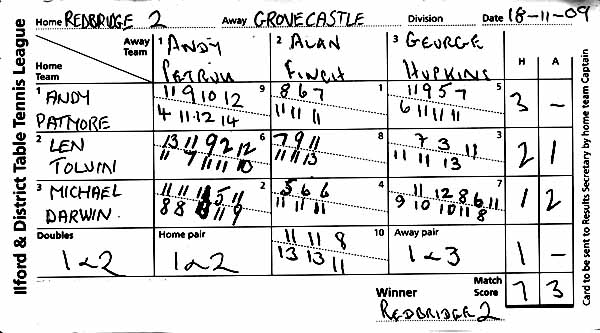 Ilford & District Table Tennis League
Home REDBRIDGE 2 Away GROVECASTLE Division Date 18-11-09
Away Team 1 ANDY 2 ALAN 3 GEORGE H A
Home Team FINCH HOPKINS
1 ANDY 11 9 10 12 9 8 6 7 1 11 9 5 7 5 3 –
PATMORE 4 11 12 14 11 11 11 6 11 11 11
2 LEN 13 11 9 2 12 6 7 9 11 8 7 3 11 3 2 1
11 7 11 11 10 11 11 13 11 11 13
3 MICHAEL 11 11 5 11 2 5 6 6 4 11 12 8 6 11 7 1 2
DARWIN 8 8 11 9 11 11 11 9 10 10 11 8
Doubles Home pair 11 11 8 10 Away pair
1 & 2 1 & 2 13 13 11 1 & 3 1 –
Winner Match Score 7 3
REDBRIDGE 2
Card to be sent to Results Secretary by home team Captain